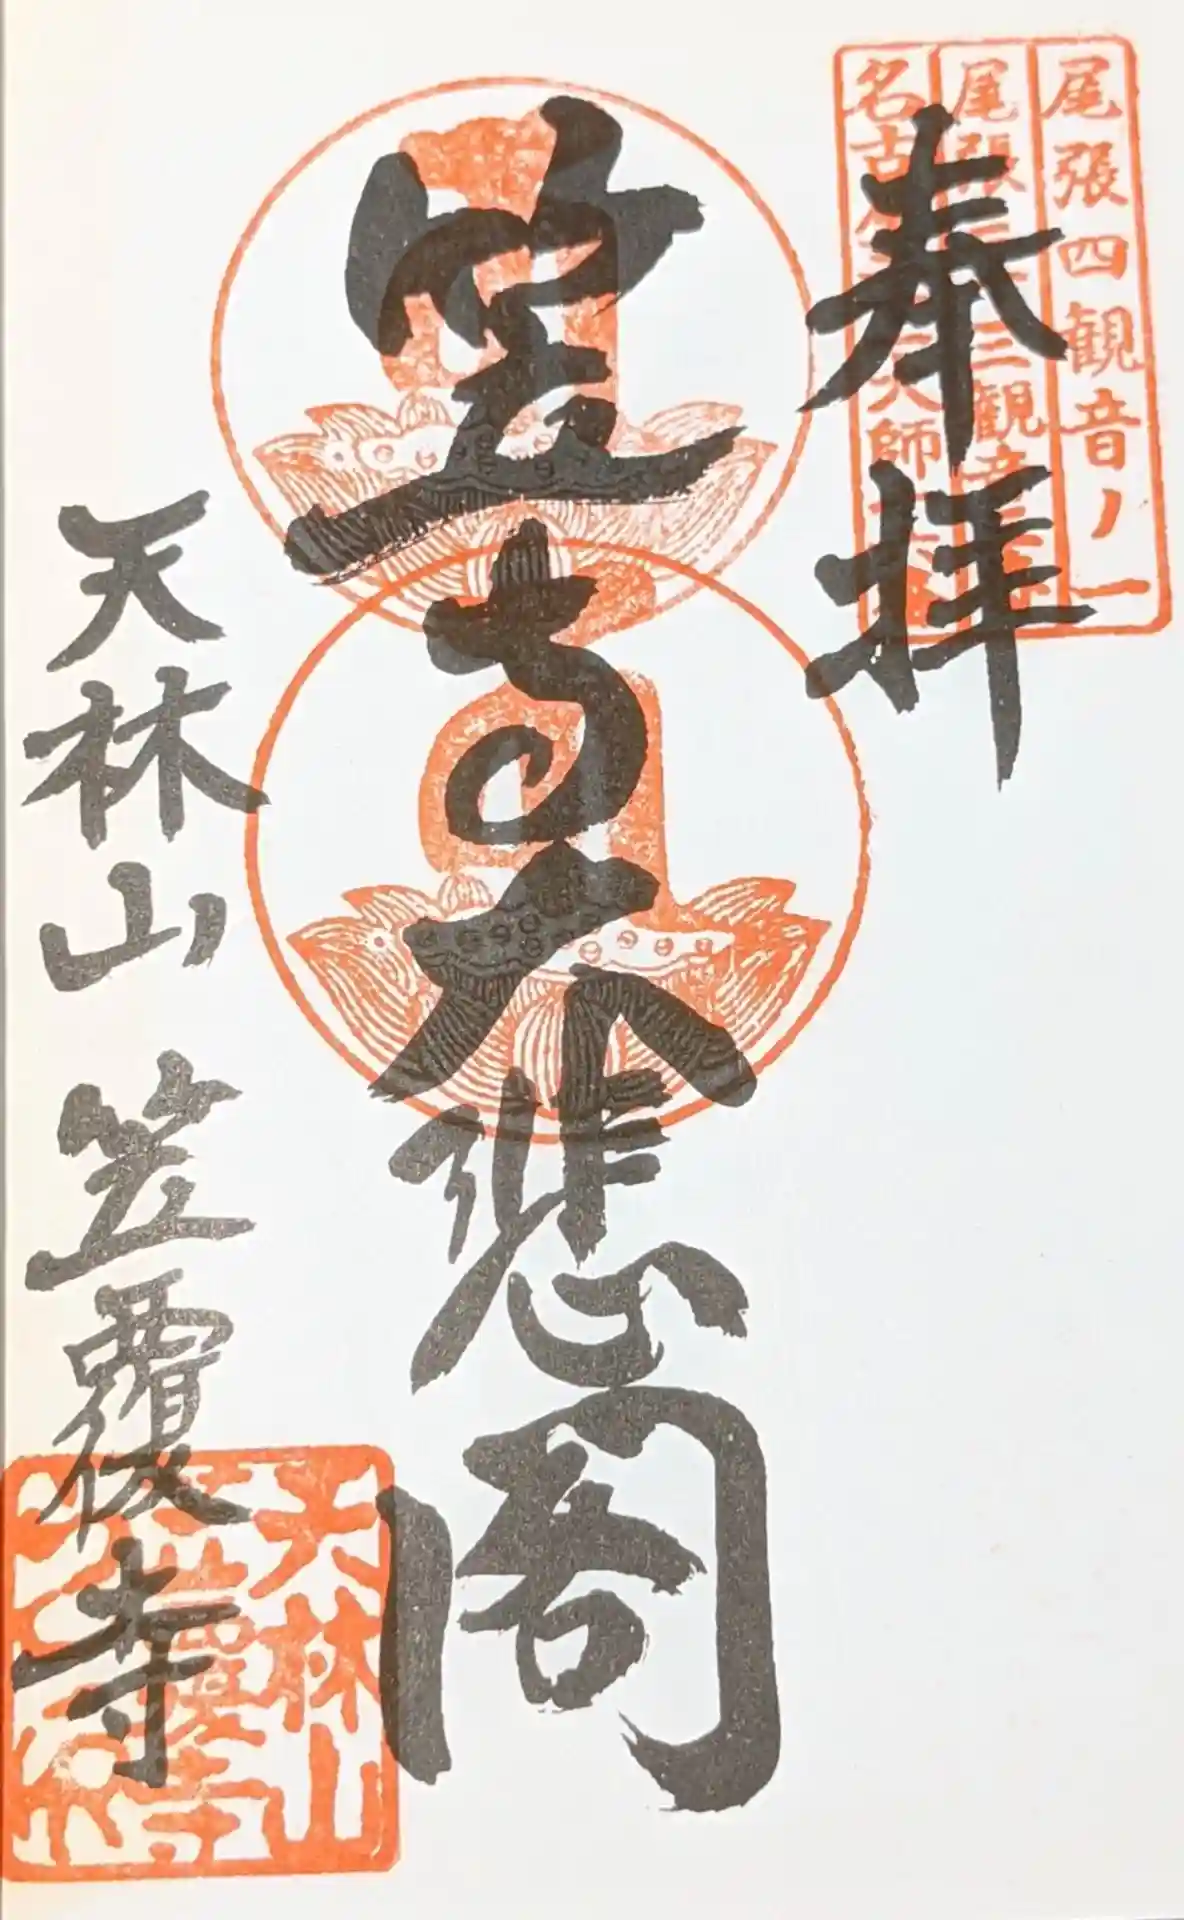 尾張四観音ノ一
尾張三十三観音
名古屋二十一大師
奉拝
笠寺大悲閣
天林山 笠覆寺
天林山
笠覆寺